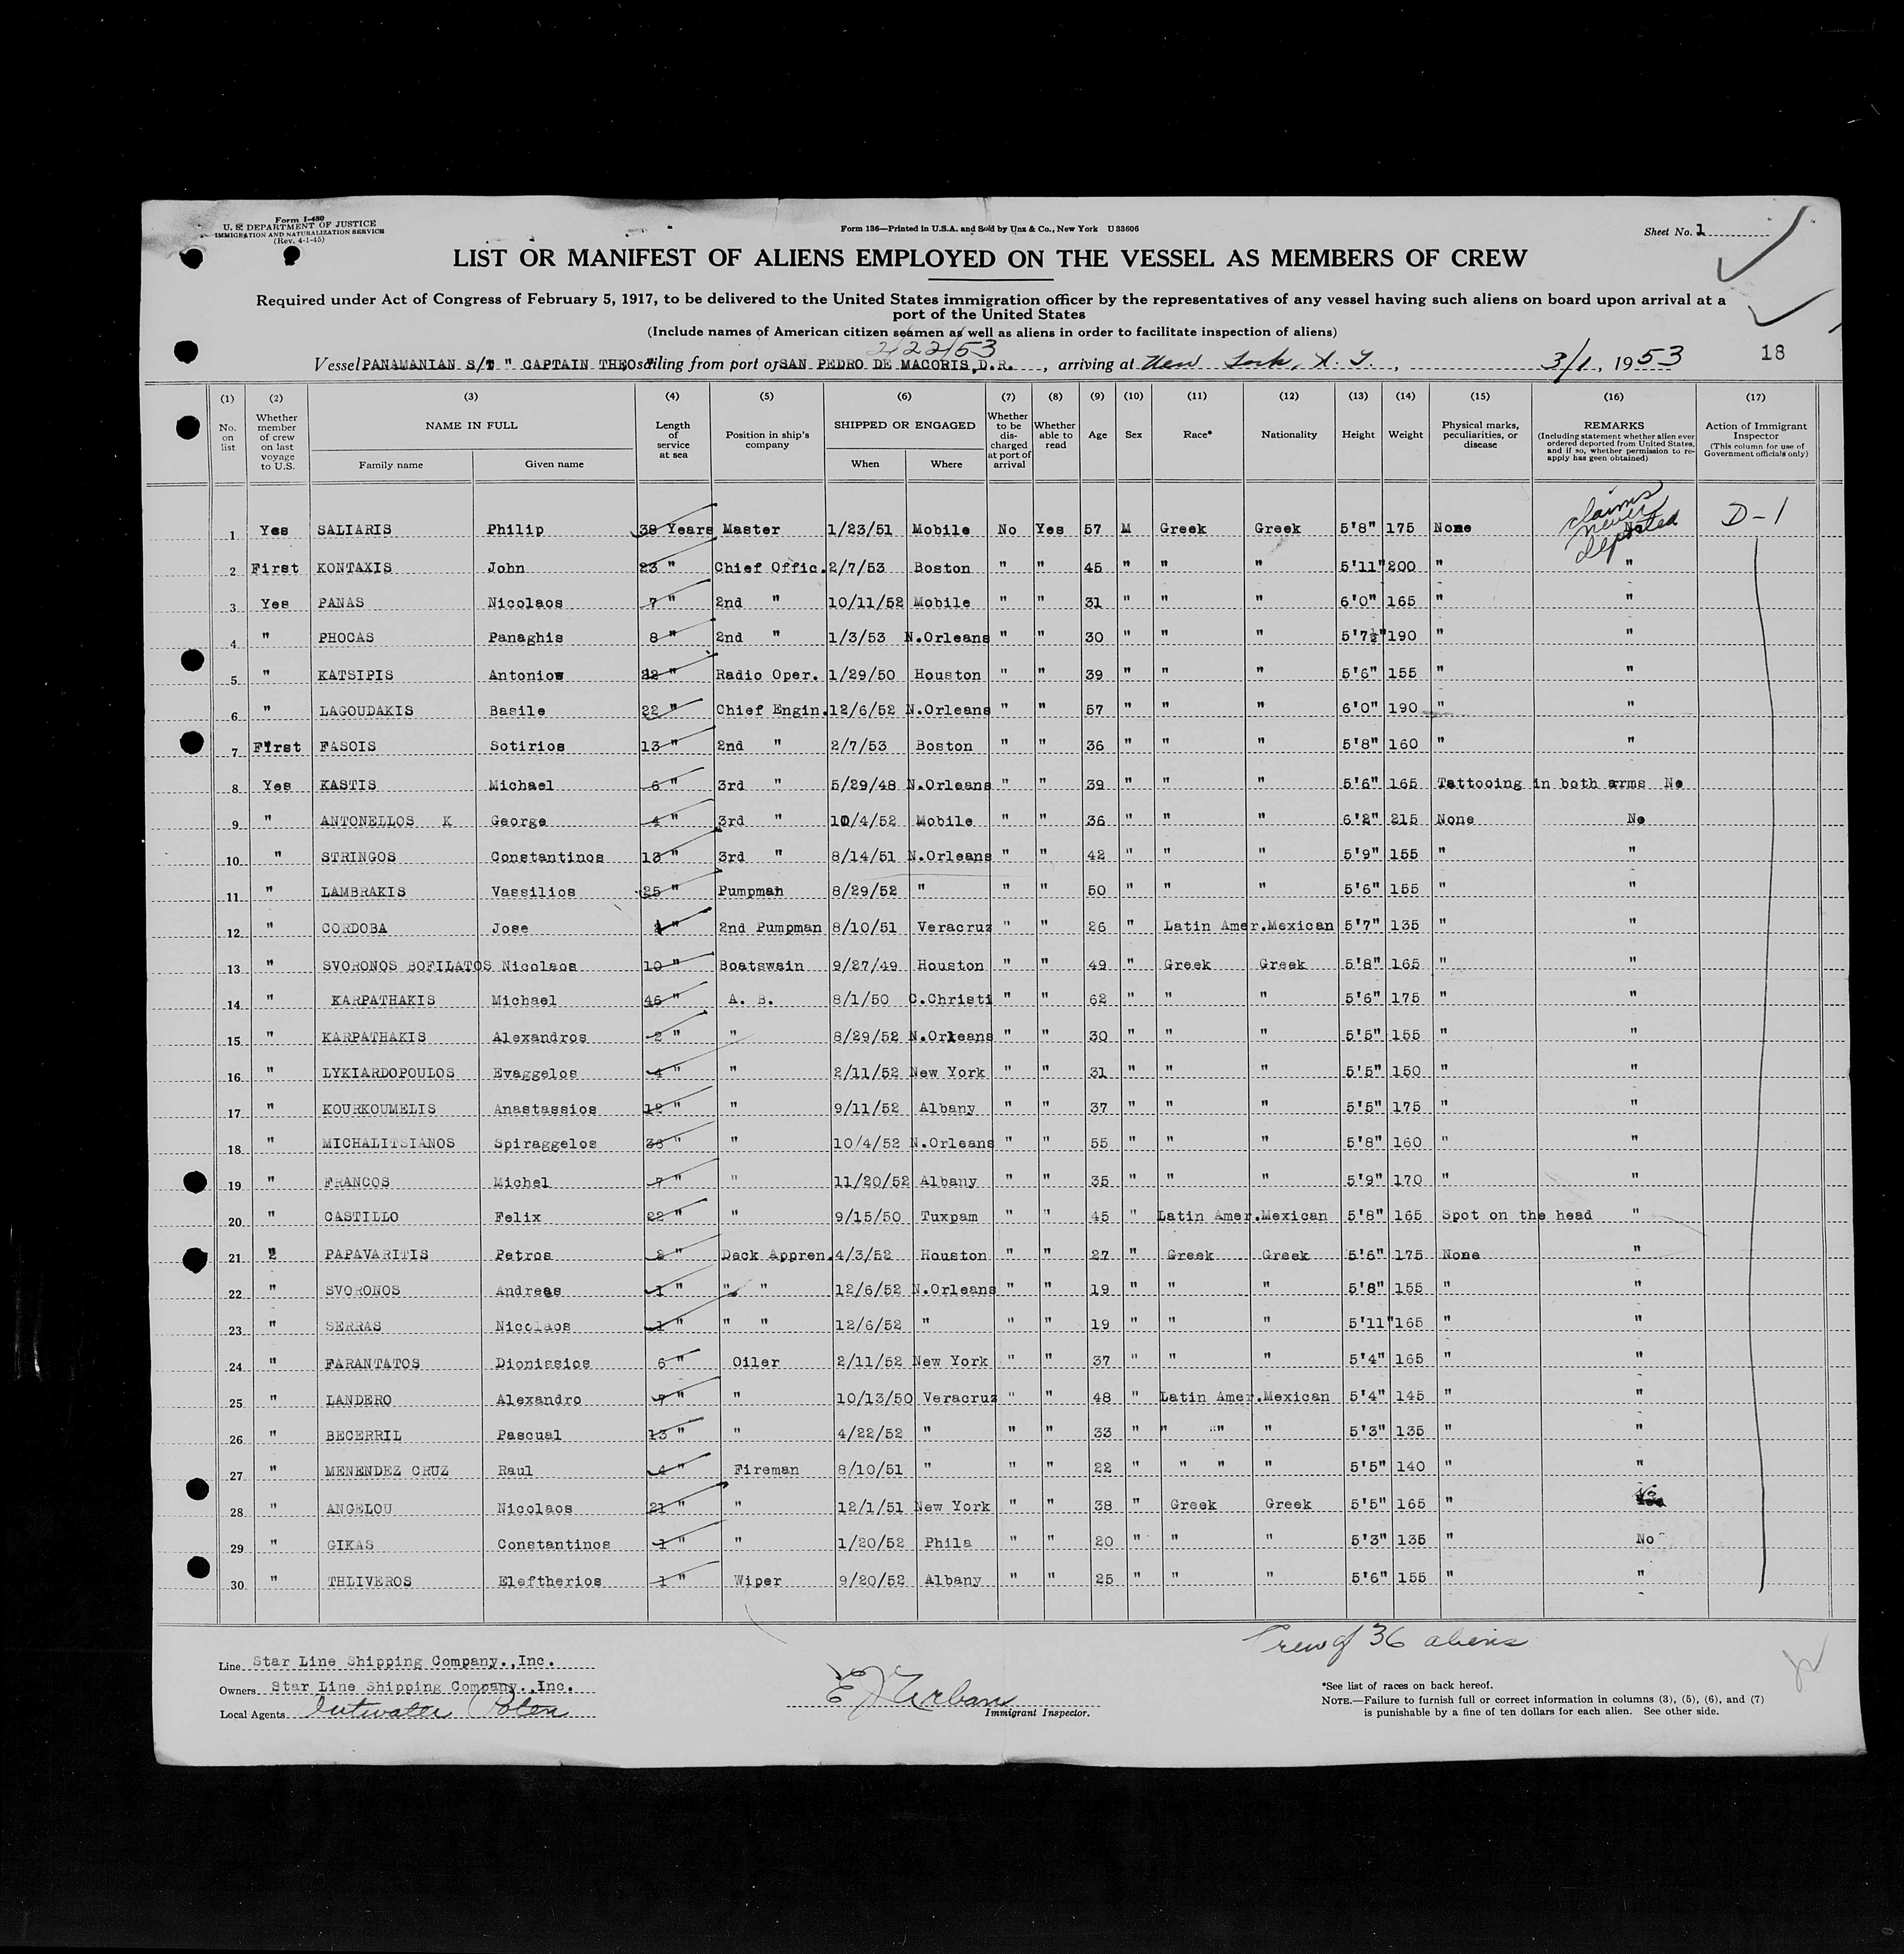 Form I-480
U. S. DEPARTMENT OF JUSTICE
IMMIGRATION AND NATURALIZATION SERVICE
(Rev. 4-1-45)
Form 136—Printed in U.S.A. and Sold by Unz & Co., New York U 33606
Sheet No. 1
LIST OR MANIFEST OF ALIENS EMPLOYED ON THE VESSEL AS MEMBERS OF CREW
Required under Act of Congress of February 5, 1917, to be delivered to the United States immigration officer by the representatives of any vessel having such aliens on board upon arrival at a
port of the United States
(Include names of American citizen seamen as well as aliens in order to facilitate inspection of aliens)
2/22/53
Vessel PANAMANIAN S/T " CAPTAIN THEO" sailing from port of SAN PEDRO DE MACORIS, D.R., arriving at New York, N. Y., 3/1, 1953 18
(1) (2) (3) (4) (5) (6) (7) (8) (9) (10) (11) (12) (13) (14) (15) (16) (17)
No. on list Whether member of crew on last voyage to U.S. NAME IN FULL Family name Given name Length of service at sea Position in ship's company SHIPPED OR ENGAGED When Where Whether to be discharged at port of arrival Whether able to read Age Sex Race* Nationality Height Weight Physical marks, peculiarities, or disease REMARKS (Including statement whether alien ever ordered deported from United States, and if so, whether permission to re-apply has geen obtained) Action of Immigrant Inspector (This column for use of Government officials only)
claims never deported
1 Yes SALIARIS Philip 38 Years Master 1/23/51 Mobile No Yes 57 M Greek Greek 5'8" 175 None No D-1
2 First KONTAXIS John 23 " Chief Offic. 2/7/53 Boston " " 45 " " " 5'11" 200 " "
3 Yes PANAS Nicolaos 7 " 2nd " 10/11/52 Mobile " " 31 " " " 6'0" 165 " "
4 " PHOCAS Panaghis 8 " 2nd " 1/3/53 N.Orleans " " 30 " " " 5'7½" 190 " "
5 " KATSIPIS Antonios " Radio Oper. 1/29/50 Houston " " 39 " " " 5'6" 155 " "
6 " LAGOUDAKIS Basile 22 " Chief Engin. 12/6/52 N.Orleans " " 57 " " " 6'0" 190 " "
7 First FASOIS Sotirios 13 " 2nd " 2/7/53 Boston " " 36 " " " 5'8" 160 " "
8 Yes KASTIS Michael 6 " 3rd " 5/29/48 N.Orleans " " 39 " " " 5'6" 165 Tattooing in both arms No
9 " ANTONELLOS K George 4 " 3rd " 10/4/52 Mobile " " 36 " " " 6'2" 215 None No
10 " STRINGOS Constantinos 13 " 3rd " 8/14/51 N.Orleans " " 42 " " " 5'9" 155 " "
11 " LAMBRAKIS Vassilios 25 " Pumpman 8/29/52 " " " 50 " " " 5'6" 155 " "
12 " CORDOBA Jose " 2nd Pumpman 8/10/51 Veracruz " " 26 " Latin Amer. Mexican 5'7" 135 " "
13 " SVORONOS BOFILATOS Nicolaos 10 " Boatswain 9/27/49 Houston " " 49 " Greek Greek 5'8" 165 " "
14 " KARPATHAKIS Michael 46 " A. B. 8/1/50 C.Christi " " 62 " " " 5'6" 175 " "
15 " KARPATHAKIS Alexandros 2 " " 8/29/52 N.Orleans " " 30 " " " 5'5" 155 " "
16 " LYKIARDOPOULOS Evaggelos 4 " " 2/11/52 New York " " 31 " " " 5'5" 150 " "
17 " KOURKOUMELIS Anastassios 12 " " 9/11/52 Albany " " 37 " " " 5'5" 175 " "
18 " MICHALITSIANOS Spiraggelos 36 " " 10/4/52 N.Orleans " " 55 " " " 5'8" 160 " "
19 " FRANCOS Michel 7 " " 11/20/52 Albany " " 35 " " " 5'9" 170 " "
20 " CASTILLO Felix 22 " " 9/15/50 Tuxpam " " 45 " Latin Amer. Mexican 5'8" 165 Spot on the head "
21 " PAPAVARITIS Petros 2 " Deck Appren. 4/3/52 Houston " " 27 " Greek Greek 5'6" 175 None "
22 " SVORONOS Andreas 1 " " " 12/6/52 N.Orleans " " 19 " " " 5'8" 155 " "
23 " SERRAS Nicolaos 1 " " " 12/6/52 " " " 19 " " " 5'11" 165 " "
24 " FARANTATOS Dionissios 6 " Oiler 2/11/52 New York " " 37 " " " 5'4" 165 " "
25 " LANDERO Alexandro 7 " " 10/13/50 Veracruz " " 48 " Latin Amer. Mexican 5'4" 145 " "
26 " BECERRIL Pascual 13 " " 4/22/52 " " " 33 " " "" " 5'3" 135 " "
27 " MENENDEZ CRUZ Raul 4 " Fireman 8/10/51 " " " 22 " " " " 5'5" 140 " "
28 " ANGELOU Nicolaos 21 " " 12/1/51 New York " " 38 " Greek Greek 5'5" 165 " No
29 " GIKAS Constantinos 1 " " 1/20/52 Phila " " 20 " " " 5'3" 135 " No
30 " THLIVEROS Eleftherios 1 " Wiper 9/20/52 Albany " " 25 " " " 5'6" 155 " "
Crew of 36 aliens
Line Star Line Shipping Company.,Inc.
Owners Star Line Shipping Company.,Inc.
Local Agents Poten
E J Urban
Immigrant Inspector.
*See list of races on back hereof.
NOTE.—Failure to furnish full or correct information in columns (3), (5), (6), and (7)
is punishable by a fine of ten dollars for each alien. See other side.